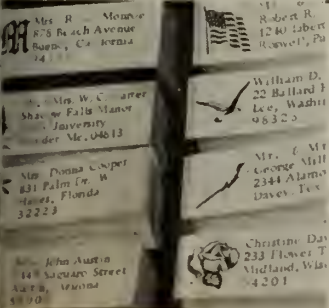 Mrs. R. Monroe
878 Beach Avenue
Buena, California
Mrs. W. C. Carter
Shadow Falls Manor
University
Me. 04613
Mrs. Donna Cooper
831 Palm Dr. W.
Florida
32223
John Austin
Saguaro Street
Arizona
Robert R.
1240
William D.
22 Ballard
Lee, Washin
98325
Mr. & Mr
George Mill
2344 Alamo
Daves, Tex
Christine Dav
233 Flower T
Midland, Wis
54201